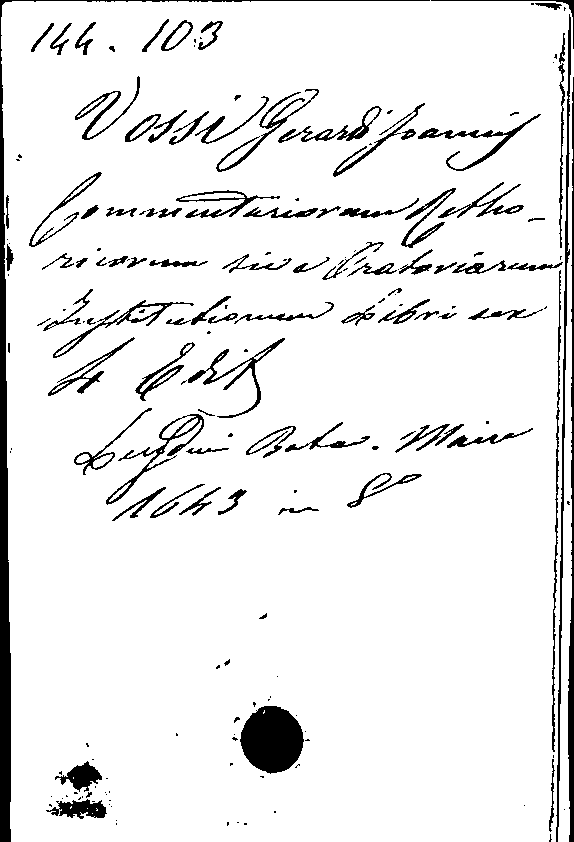 144. 103
Vossi Gerardi Joannis
Commentariorum Retho-
ricorum sive Oratoriarum
Institutionum Libri sex
4 Edit
Lugduni Bata. Maire
1643 in 8º